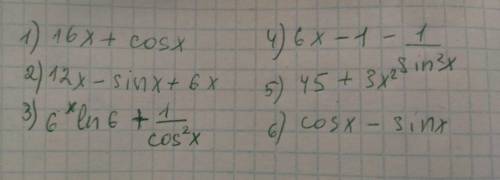 1) 16x + cosx
2) 12x - sinx + 6x
3) 6^x ln6 + 1/cos²x
4) 6x - 1 - 1/sin²x
5) 45 + 3x²
6) cosx - sinx